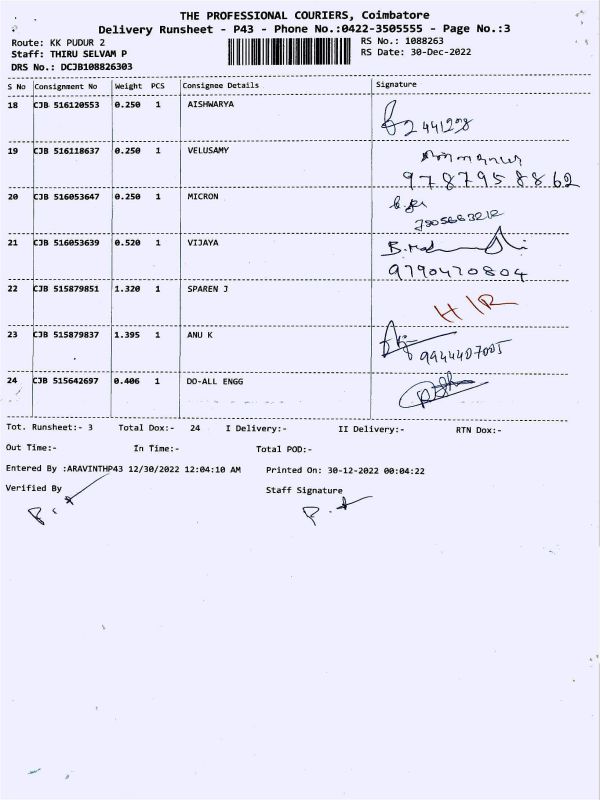 THE PROFESSIONAL COURIERS, Coimbatore
Delivery Runsheet - P43 - Phone No.:0422-3505555 - Page No.:3
Route: KK PUDUR 2 RS No.: 1088263
Staff: THIRU SELVAM P RS Date: 30-Dec-2022
DRS No.: DCJB108826303
S No Consignment No Weight PCS Consignee Details Signature
18 CJB 516120553 0.250 1 AISHWARYA
19 CJB 516118637 0.250 1 VELUSAMY
9787958862
20 CJB 516053647 0.250 1 MICRON
21 CJB 516053639 0.520 1 VIJAYA
9790470804
22 CJB 515879851 1.320 1 SPAREN J
23 CJB 515879837 1.395 1 ANU K
24 CJB 515642697 0.406 1 DO-ALL ENGG
Tot. Runsheet:- 3 Total Dox:- 24 I Delivery:- II Delivery:- RTN Dox:-
Out Time:- In Time:- Total POD:-
Entered By :ARAVINTHP43 12/30/2022 12:04:10 AM Printed On: 30-12-2022 00:04:22
Verified By Staff Signature